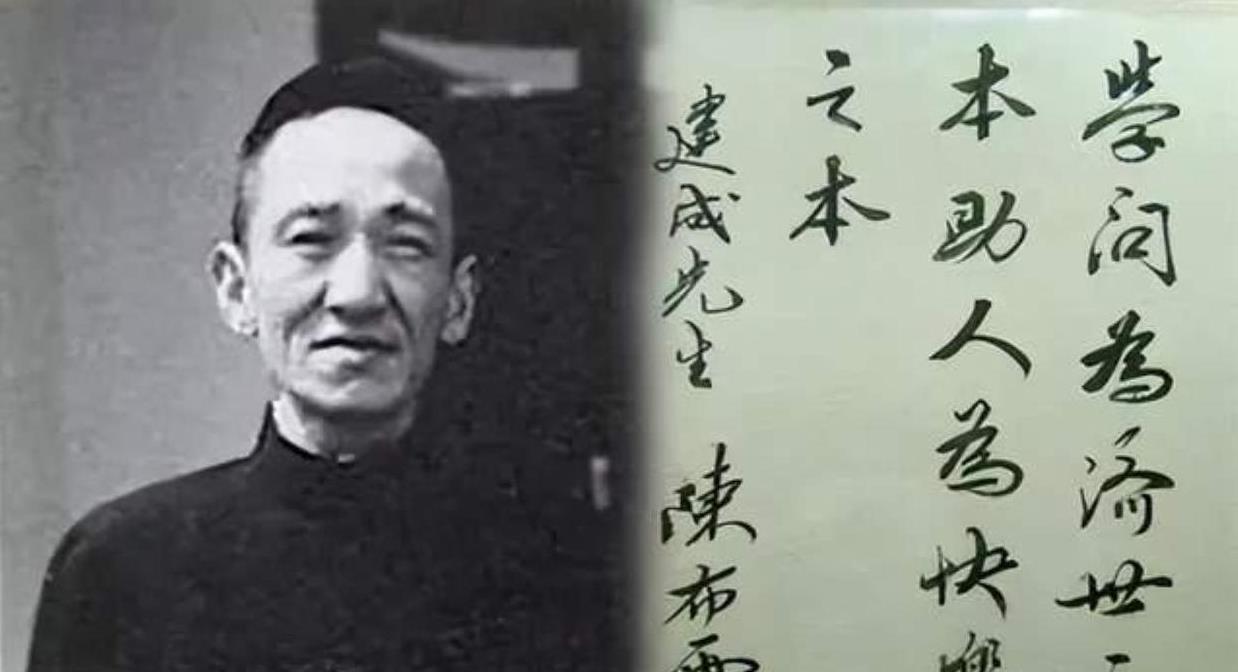 學問為濟世之
本助人為快樂
之本
建成先生 陳布雷